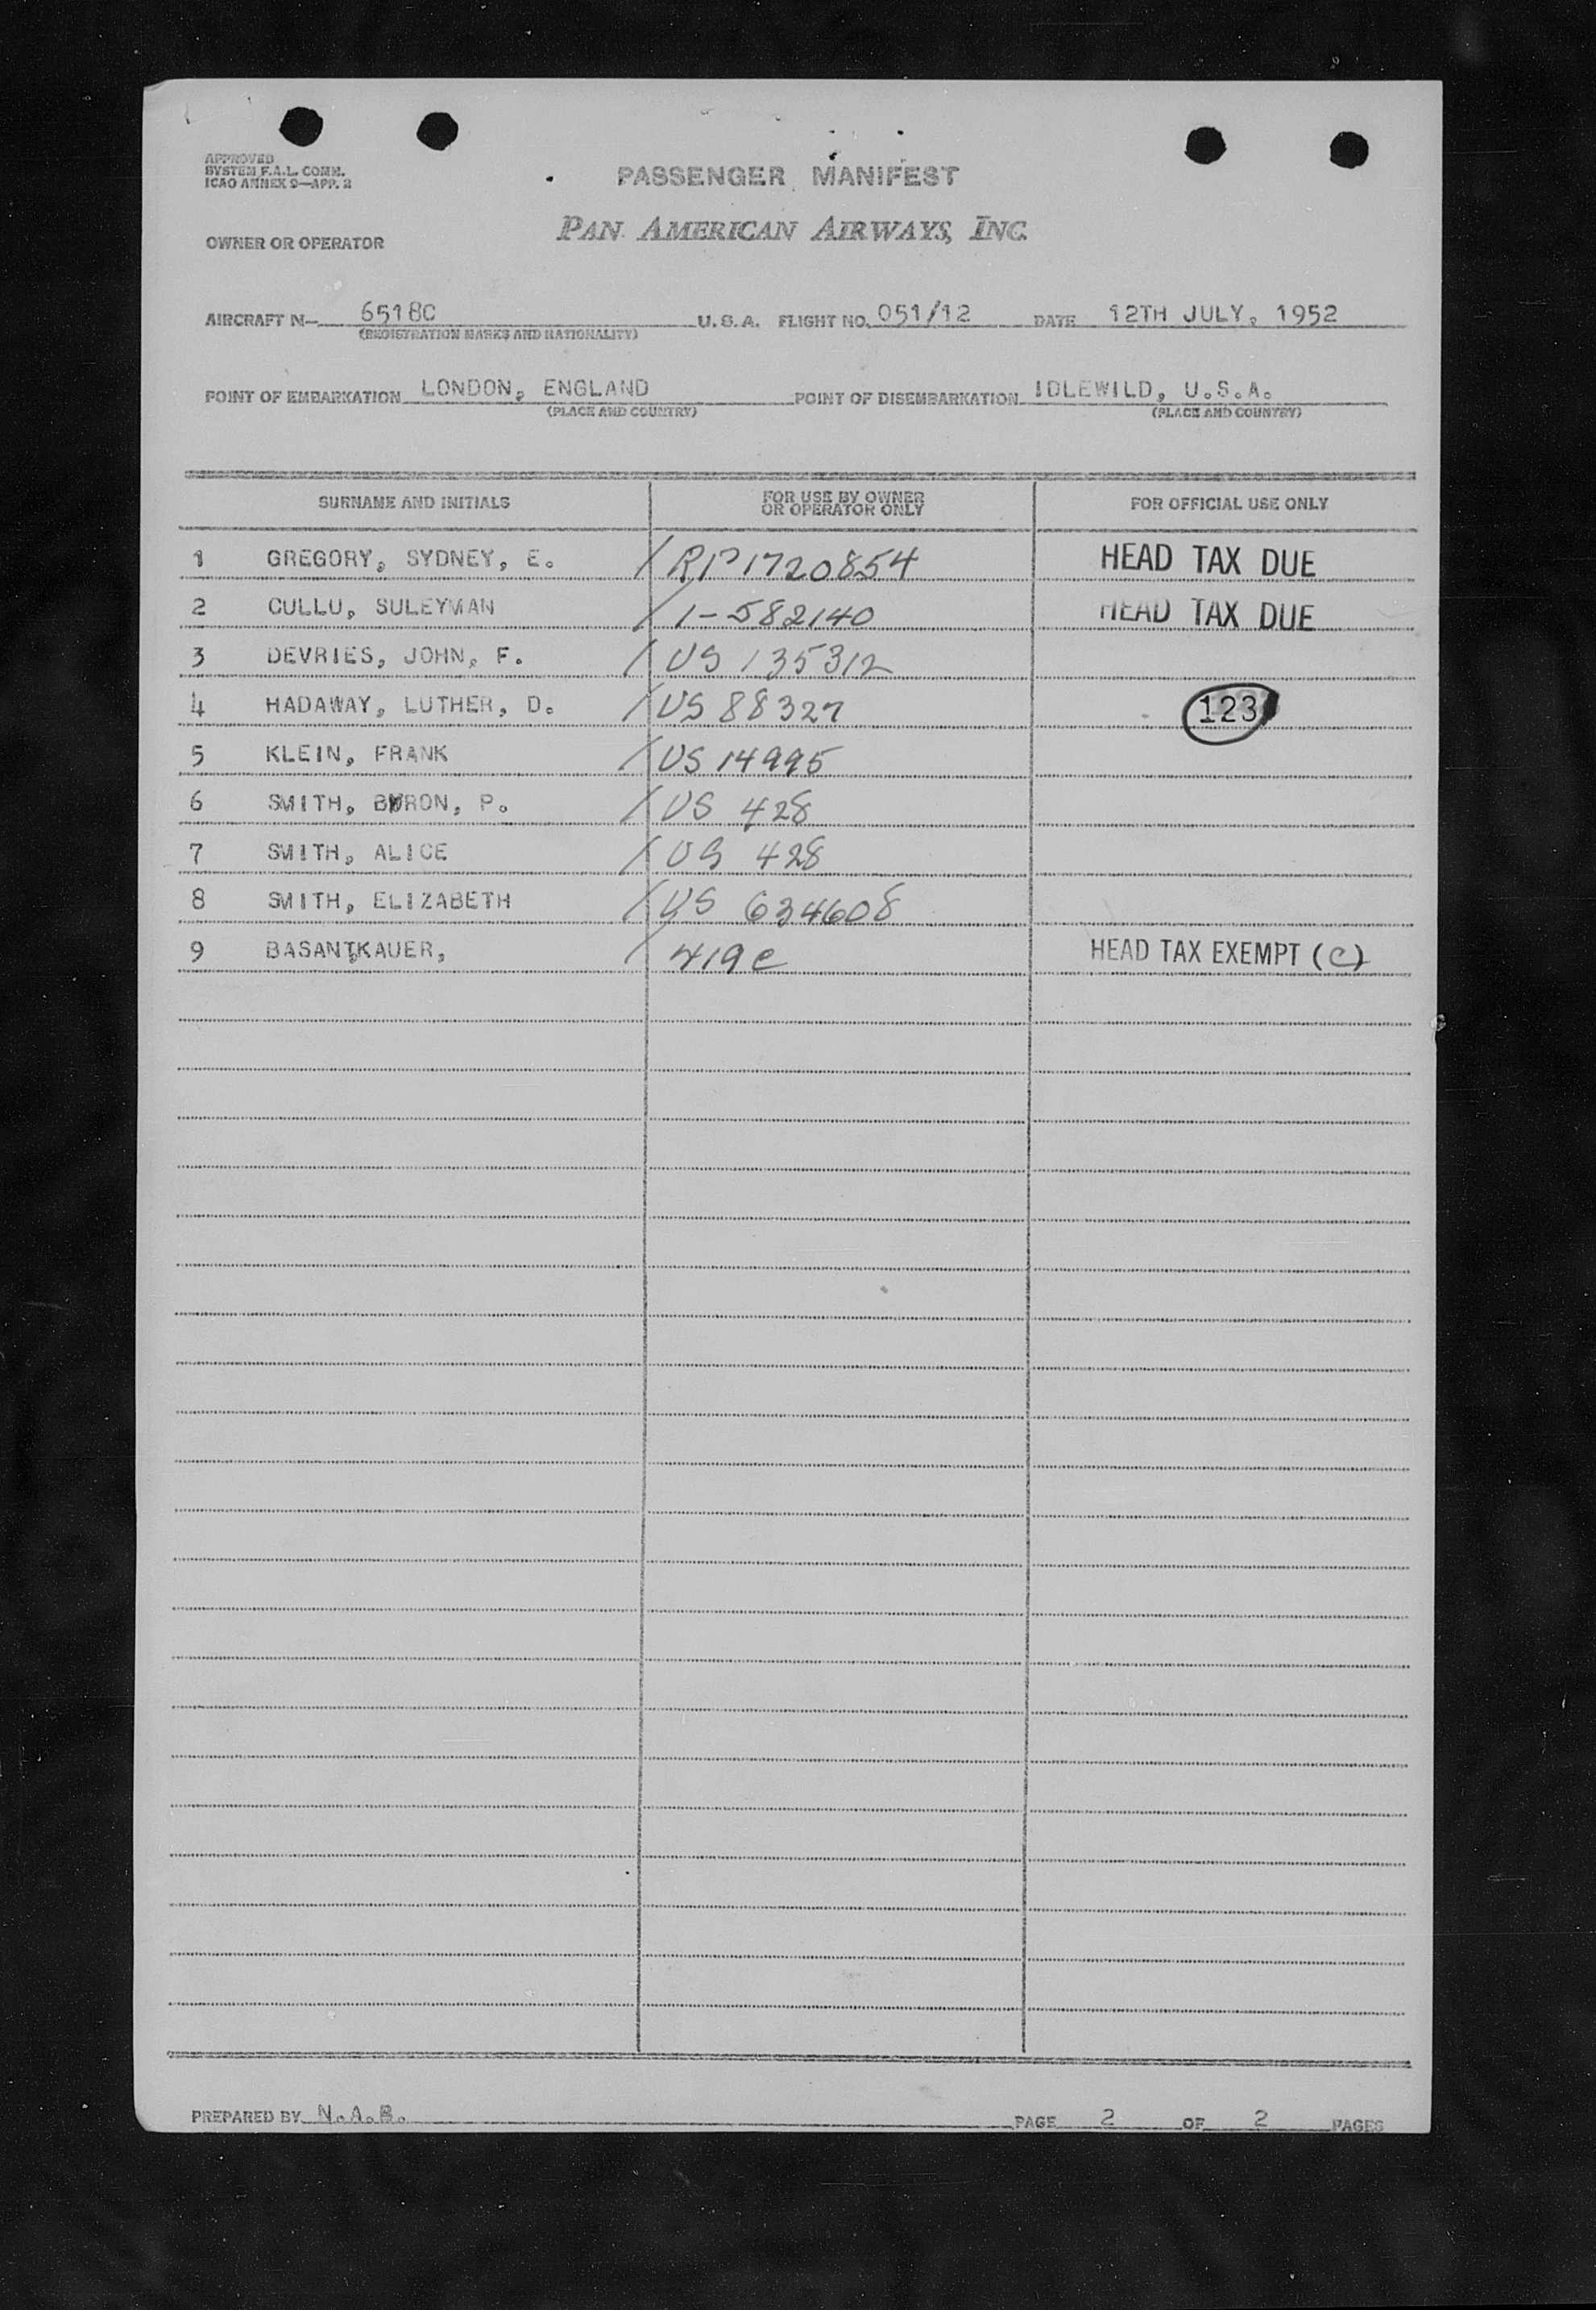 APPROVED
SYSTEM F.A.L. COMM.
ICAO ANNEX 9—APP. 2
PASSENGER MANIFEST
PAN AMERICAN AIRWAYS, INC.
OWNER OR OPERATOR
AIRCRAFT N— 6518C U.S.A. FLIGHT NO. 051/12 DATE 12TH JULY, 1952
(REGISTRATION MARKS AND NATIONALITY)
POINT OF EMBARKATION LONDON, ENGLAND POINT OF DISEMBARKATION IDLEWILD, U.S.A.
(PLACE AND COUNTRY) (PLACE AND COUNTRY)
SURNAME AND INITIALS FOR USE BY OWNER OR OPERATOR ONLY FOR OFFICIAL USE ONLY
1 GREGORY, SYDNEY, E. / RP1720854 HEAD TAX DUE
2 CULLU, SULEYMAN / 1-582140 HEAD TAX DUE
3 DEVRIES, JOHN, F. / US 135312
4 HADAWAY, LUTHER, D. / US 88327 123
5 KLEIN, FRANK / US 14995
6 SMITH, BYRON, P. / US 428
7 SMITH, ALICE / US 428
8 SMITH, ELIZABETH / US 634608
9 BASANT,KAUER, / 419c HEAD TAX EXEMPT (C)
PREPARED BY N.A.B. PAGE 2 OF 2 PAGES